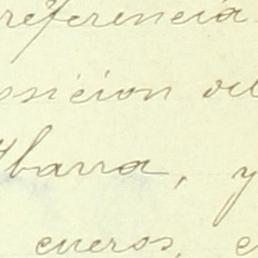 referencia
osicion del
Ibarra, y
cueros, e